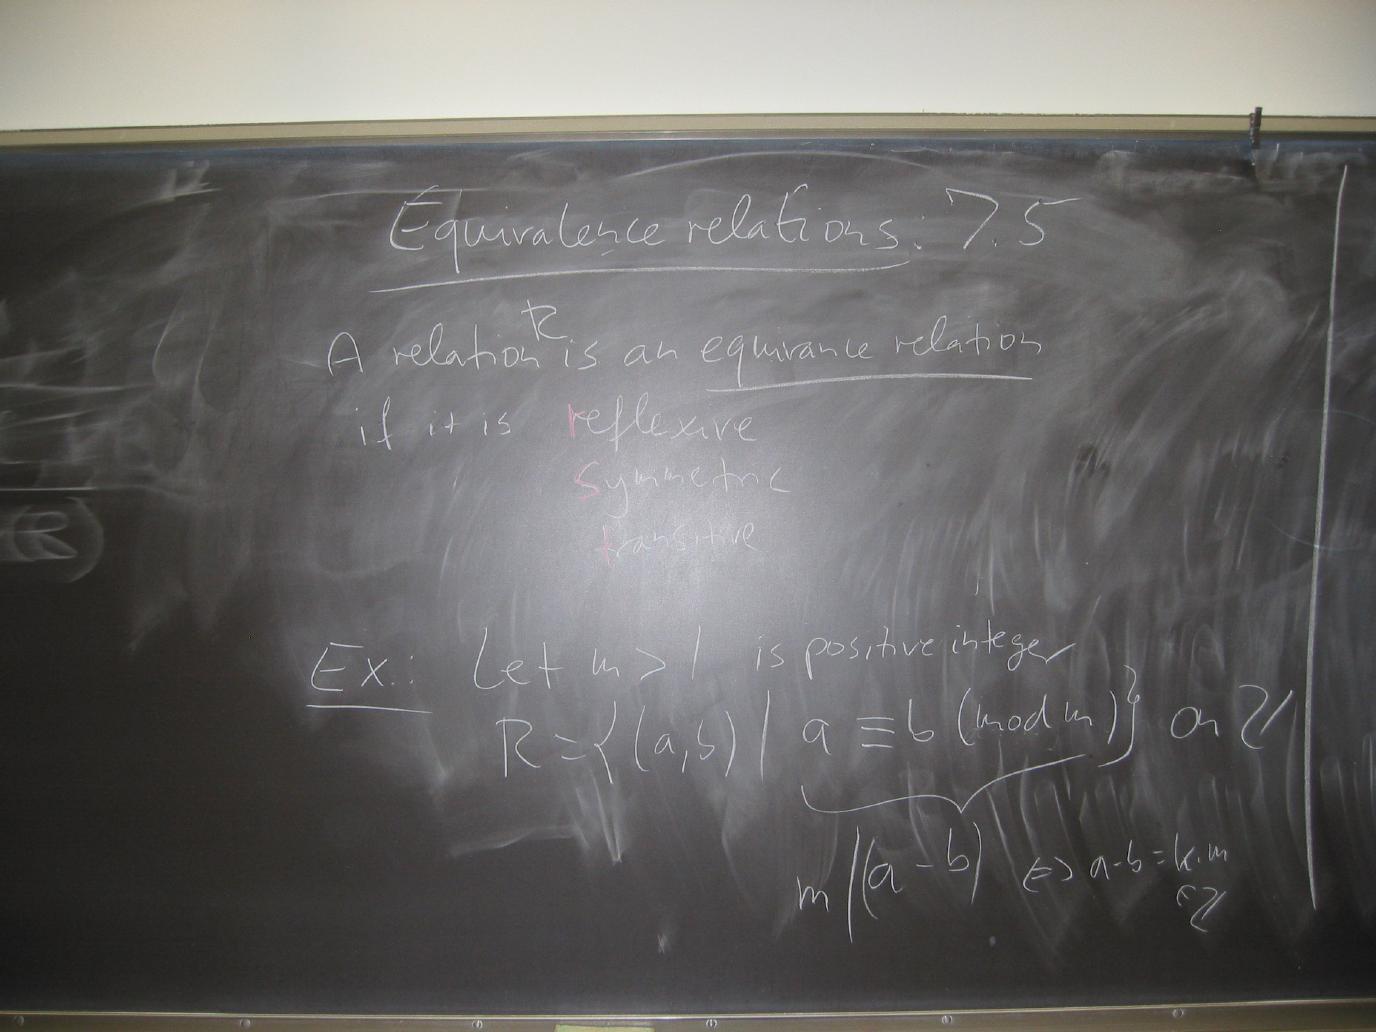 Equivalence relations: 7.5
A relation R is an equivrance relation
if it is reflexive
symmetric
transitive
Ex.: Let m > 1 is positive integer
R = {(a,b) | a ≡ b (mod m)} on ℤ
m | (a - b) ⇔ a-b = k·m
∈ℤ
R